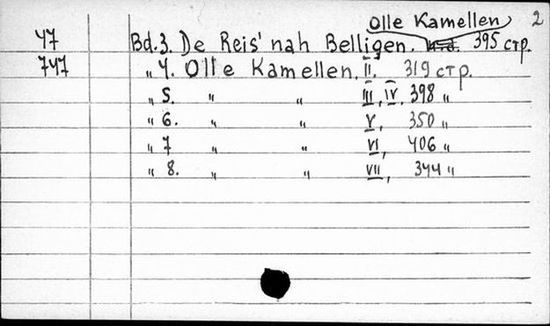 Olle Kamellen 2
47 Bd.3. De Reis' nah Belligen. 395 стр.
747 „ 4. Olle Kamellen. II. 319 стр.
„ 5. „ „ III, IV, 398 „
„ 6. „ „ V, 350 „
„ 7 „ „ VI, 406 „
„ 8. „ „ VII, 344 „